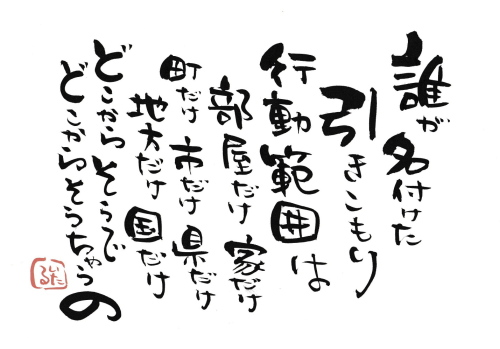 誰が名付けた
引きこもり
行動範囲は
部屋だけ 家だけ
町だけ 市だけ 県だけ
地方だけ 国だけ
どこからそうで
どこからそうちゃうの